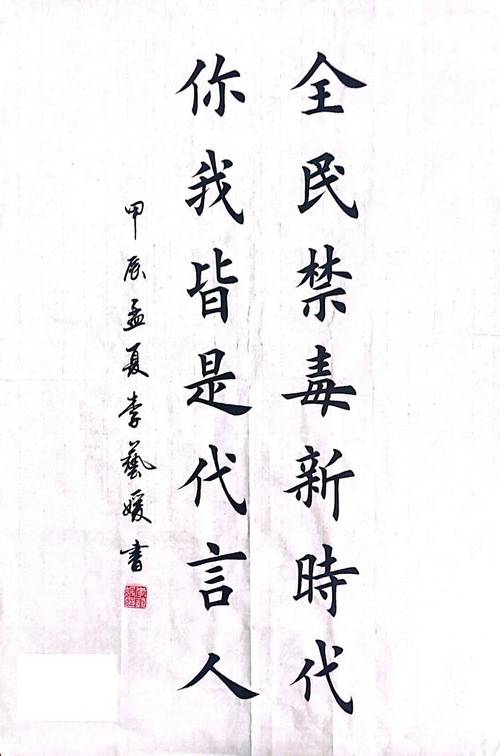 全民禁毒新時代
你我皆是代言人
甲辰孟夏李藝媛書